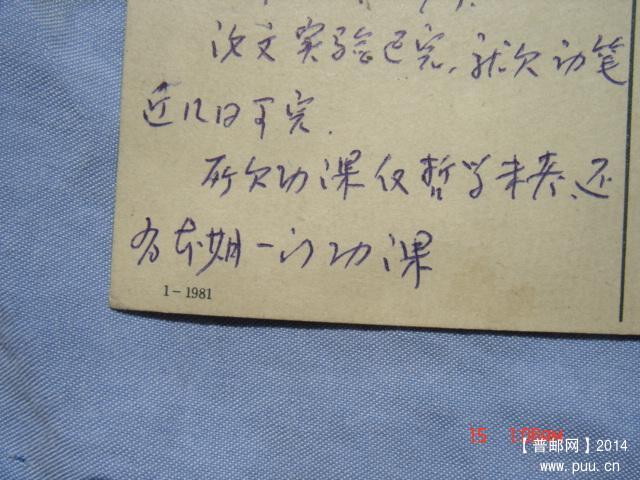 论文实验已完,就欠动笔
近几日可完.
所欠功课仅哲学未考、还
有本期一门功课
1-1981
15
【普邮网】2014
www.puu.cn